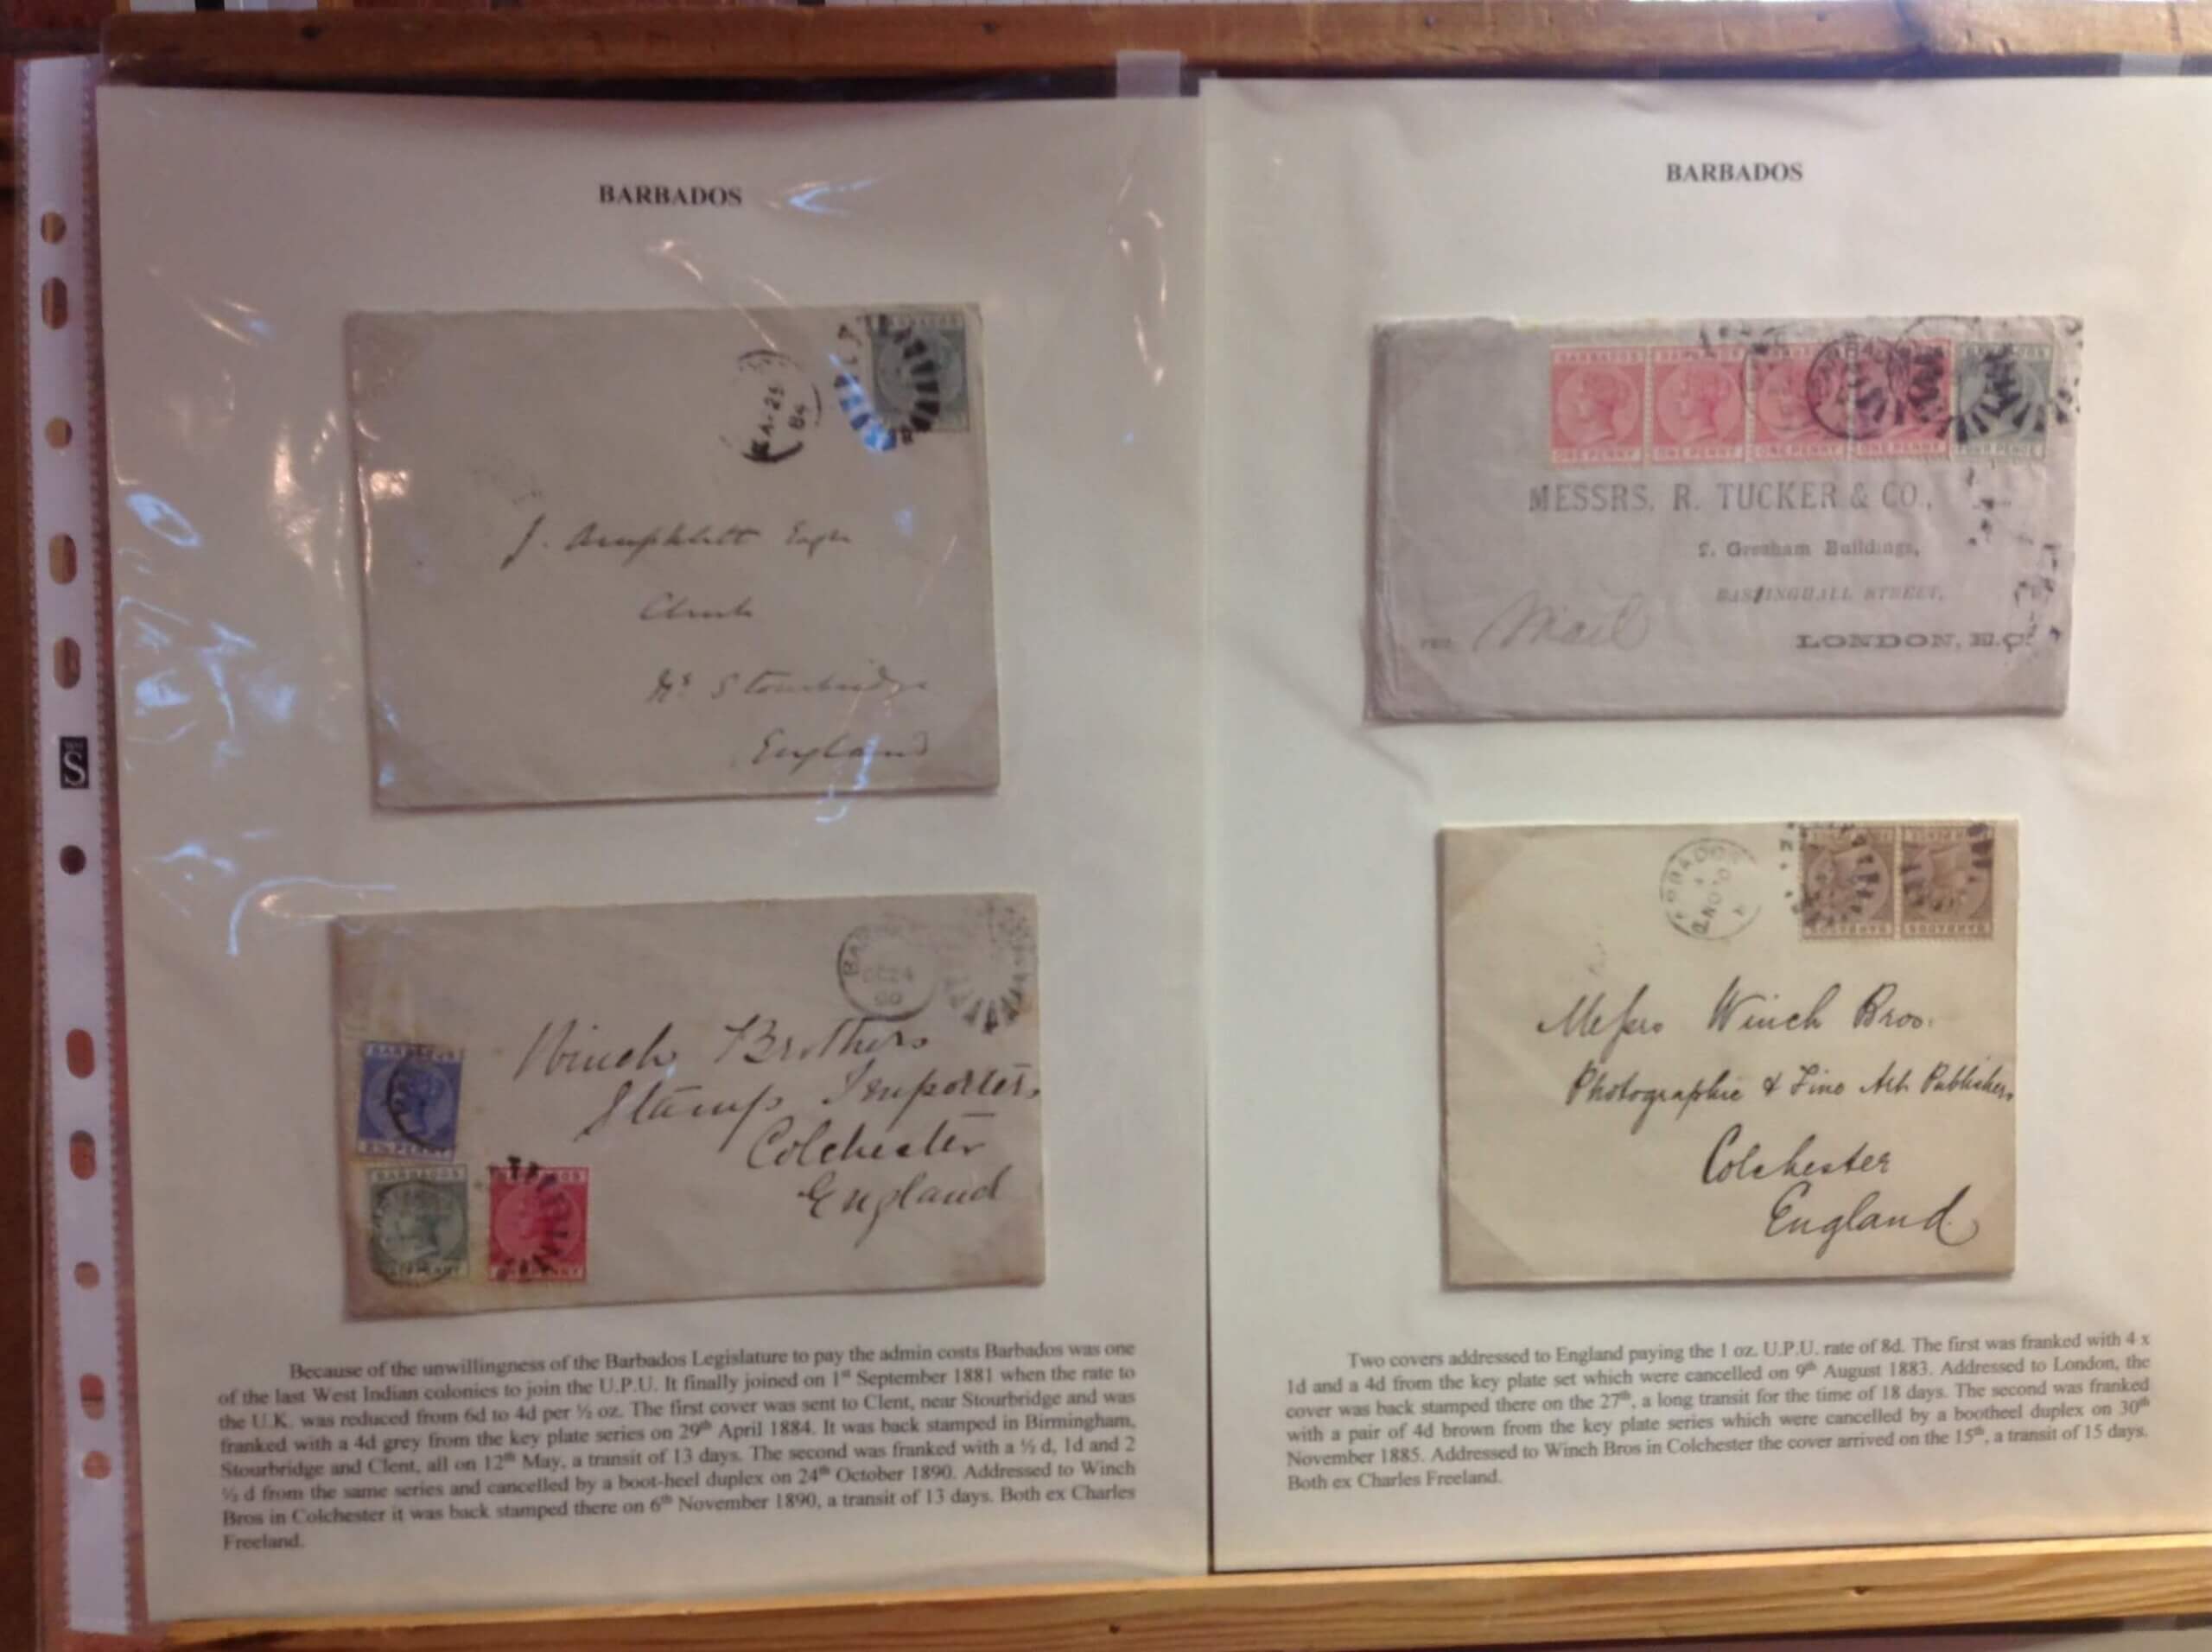 BARBADOS
A-29
84
J. Amphlett Esqre
Clent
Nr Stourbridge
England
BA
OC 24
90
Winch Brothers
Stamp Importers
Colchester
England
BARBADOS
2½ PENNY
BARBADOS
PENNY
Because of the unwillingness of the Barbados Legislature to pay the admin costs Barbados was one
of the last West Indian colonies to join the U.P.U. It finally joined on 1st September 1881 when the rate to
the U.K. was reduced from 6d to 4d per ½ oz. The first cover was sent to Clent, near Stourbridge and was
franked with a 4d grey from the key plate series on 29th April 1884. It was back stamped in Birmingham,
Stourbridge and Clent, all on 12th May, a transit of 13 days. The second was franked with a ½ d, 1d and 2
½ d from the same series and cancelled by a boot-heel duplex on 24th October 1890. Addressed to Winch
Bros in Colchester it was back stamped there on 6th November 1890, a transit of 13 days. Both ex Charles
Freeland.
S
BARBADOS
BARBADOS
ONE PENNY ONE PENNY ONE PENNY ONE PENNY FOUR PENCE
MESSRS. R. TUCKER & CO.,
Gresham Buildings,
BASINGHALL STREET,
PER Mail
LONDON, E.C.
BARBADOS
NO 30
Messrs Winch Bros.
Photographic & Fine Art Publishers
Colchester
England
Two covers addressed to England paying the 1 oz. U.P.U. rate of 8d. The first was franked with 4 x
1d and a 4d from the key plate set which were cancelled on 9th August 1883. Addressed to London, the
cover was back stamped there on the 27th, a long transit for the time of 18 days. The second was franked
with a pair of 4d brown from the key plate series which were cancelled by a bootheel duplex on 30th
November 1885. Addressed to Winch Bros in Colchester the cover arrived on the 15th, a transit of 15 days.
Both ex Charles Freeland.